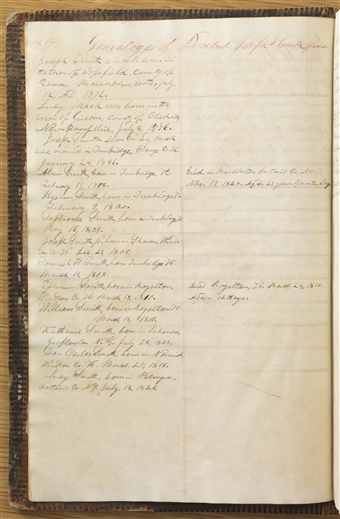 Genealogy of President Joseph Smith
Joseph Smith was born in
County of
Essex, Massachusetts, July
12, AD.
Lucy Mack was born in the
town of Gilsum, County of Cheshire,
New Hampshire, July 8, 1776.
Joseph Smith and Lucy Mack
was married in Tunbridge, Orange Co. Vt.
January 24, 1796.
Alvin Smith, born in Tunbridge, Vt.
February 11, 1798.
Died in Manchester Ontario Co. NY.
Nov. 19, Aged
Hyrum Smith, born in Tunbridge Vt.
February 9, 1800.
Sophronia Smith, born in Tunbridge Vt
May 16, 1803.
Joseph Smith jr. born in Sharon,
Co. Vt. Dec. 23, 1805.
Samuel H. Smith, born Tunbridge Vt.
March 13, 1808.
Ephraim Smith, born in Royalton,
Windsor Co. Vt. March 13, 1810.
Died Royalton, Vt. March 24, 1810.
Aged 12 days.
William Smith, born in Royalton Vt
March 13, 1811.
Catharine Smith born in Lebanon
Grafton Co. N.H. July 28, 1812.
Don Carlos Smith born in Norwich
Windsor Co. Vt. March 25, 1816.
Lucy Smith, born in Palmyra,
Ontario Co NY. July 18, 1821.